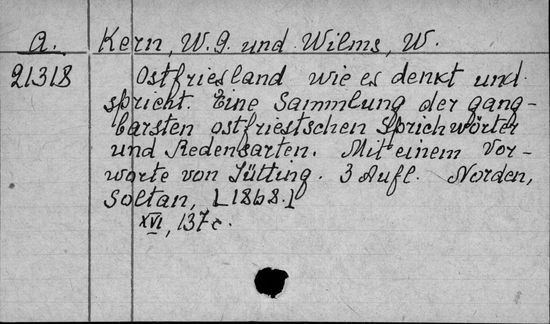 A. Kern, W. G. und Wilms, W.
21318 Ostfriesland wie es denkt und
spricht. Eine Sammlung der gang-
barsten ostfriestschen Sprichwörter
und Redensarten. Mit einem Vor-
worte von Jütting. 3 Aufl. Norden,
Soltan, [1868.]
XVI, 137 c.